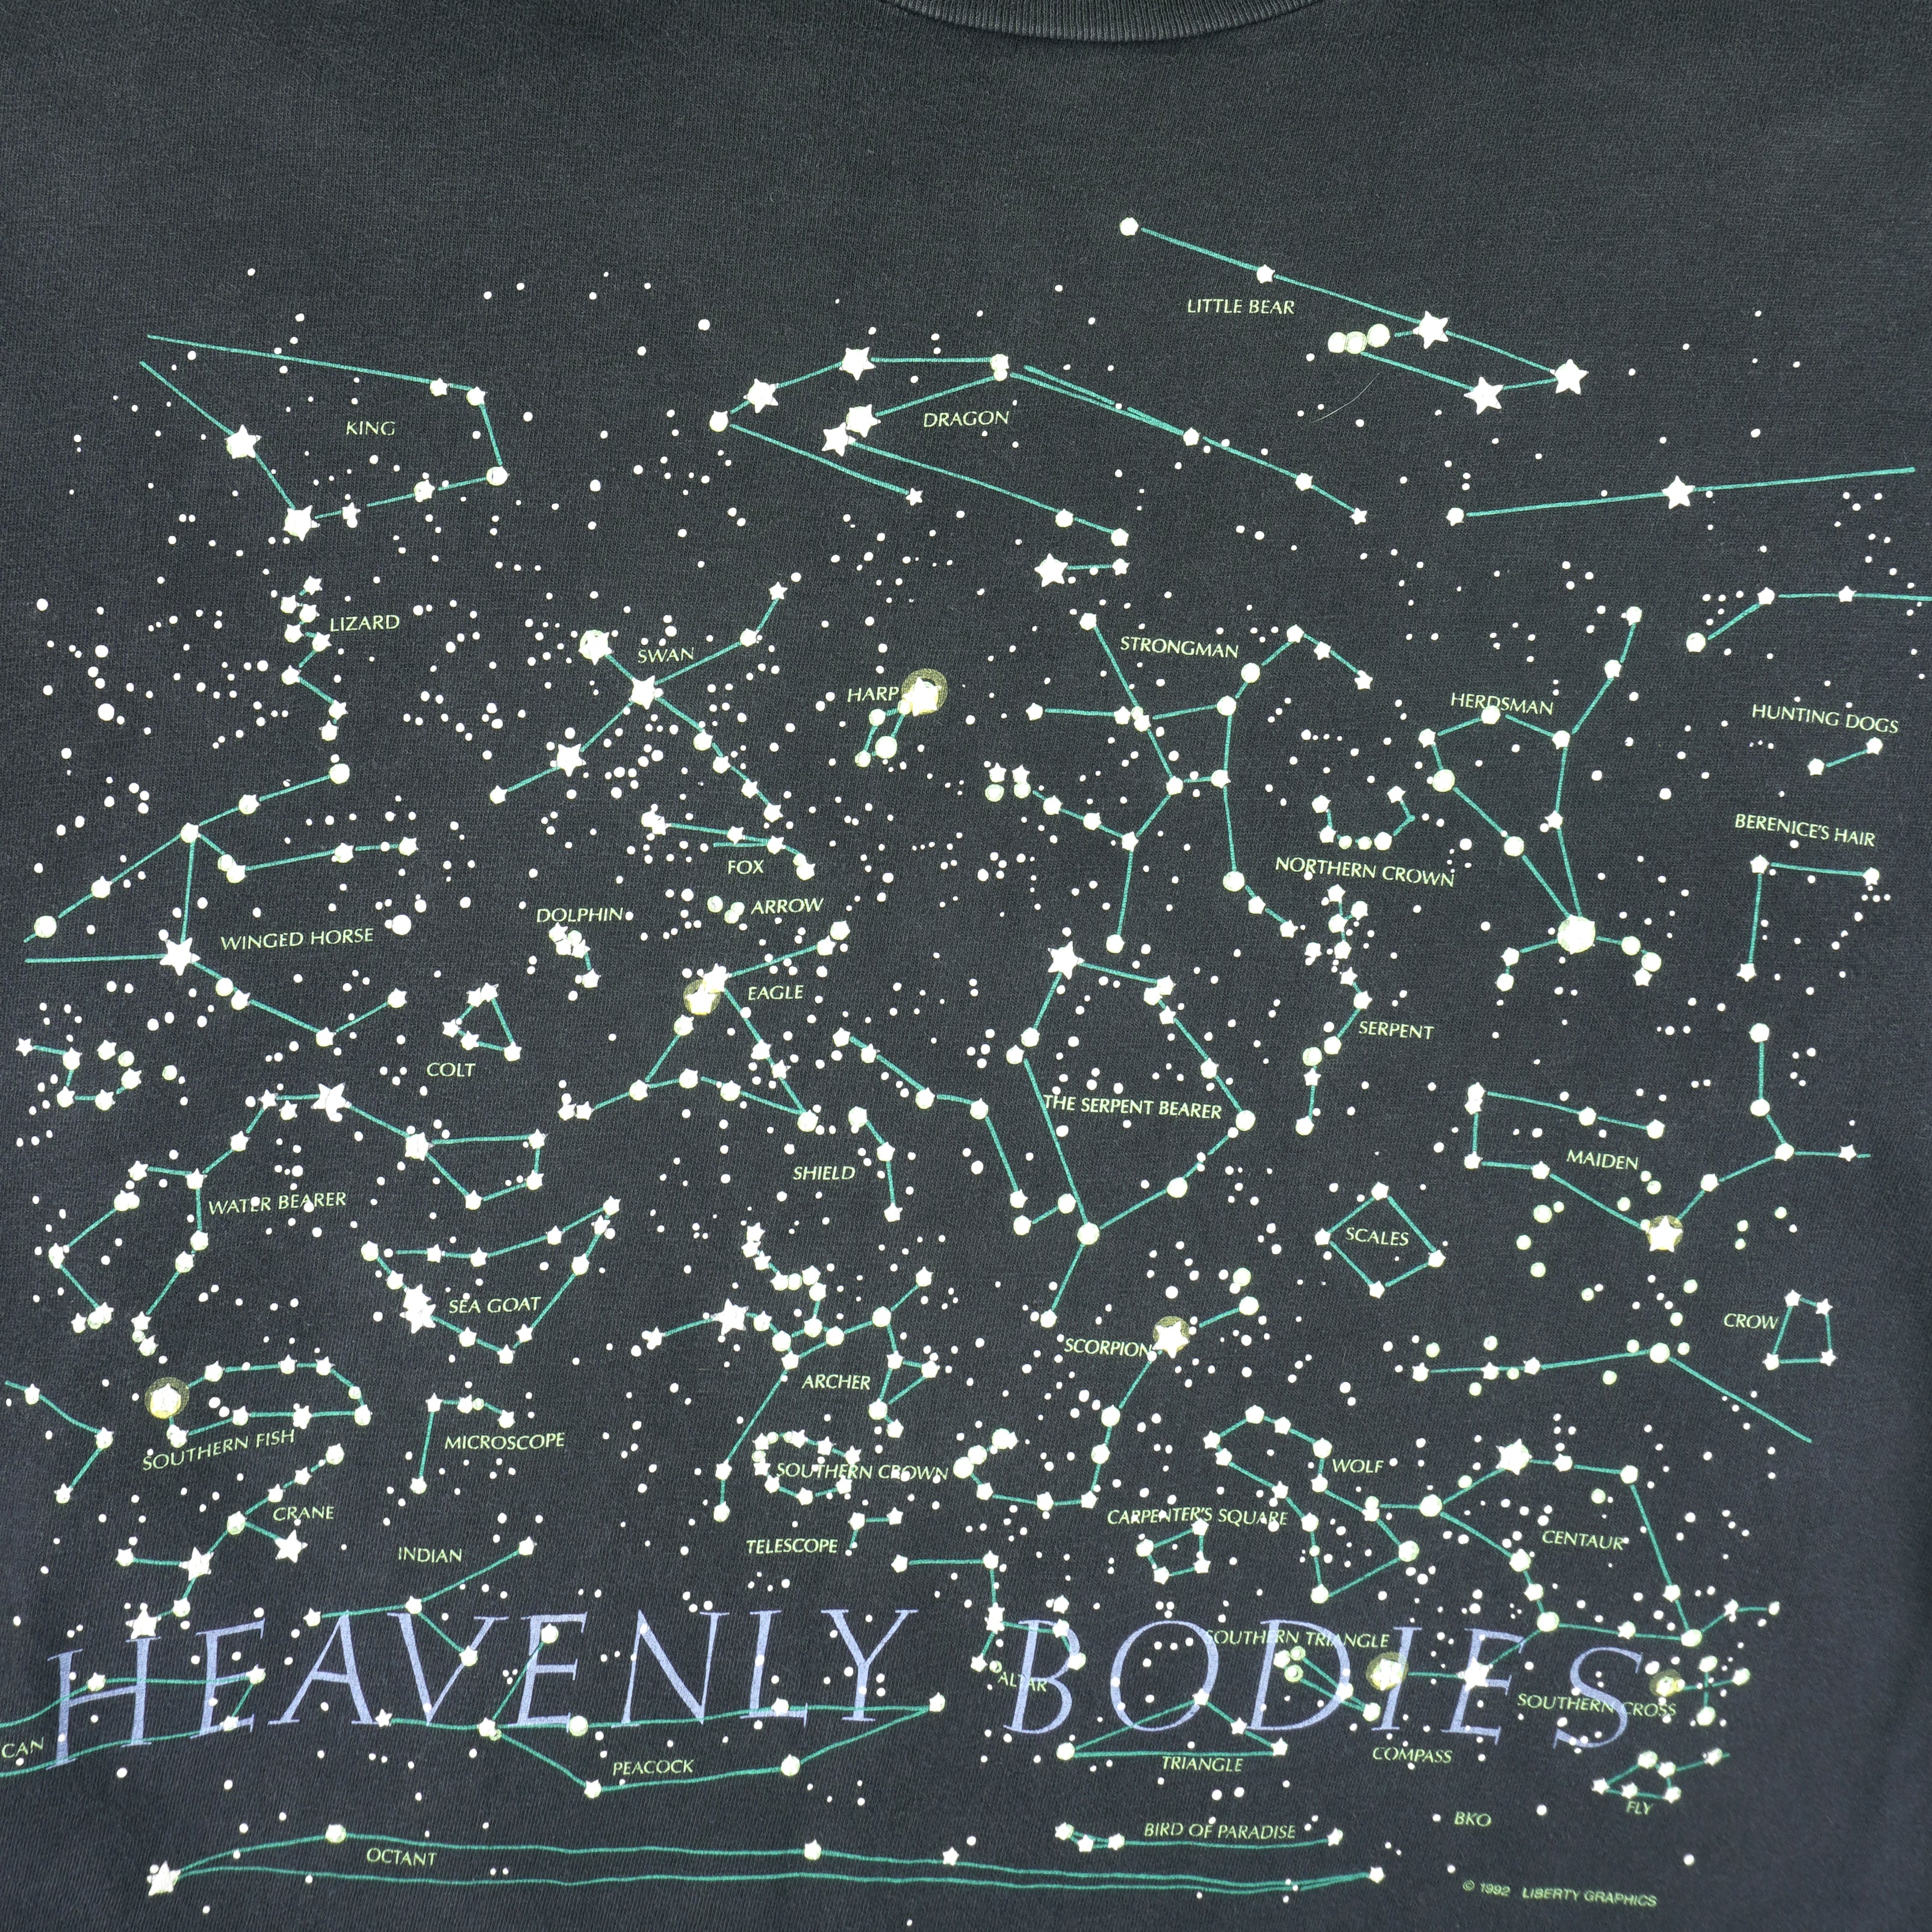 LITTLE BEAR
KING
DRAGON
LIZARD
SWAN
STRONGMAN
HARP
HERDSMAN
HUNTING DOGS
BERENICE'S HAIR
FOX
NORTHERN CROWN
ARROW
DOLPHIN
WINGED HORSE
EAGLE
SERPENT
COLT
THE SERPENT BEARER
MAIDEN
SHIELD
WATER BEARER
SCALES
SEA GOAT
CROW
SCORPION
ARCHER
SOUTHERN FISH
MICROSCOPE
SOUTHERN CROWN
WOLF
CRANE
CARPENTER'S SQUARE
CENTAUR
TELESCOPE
INDIAN
SOUTHERN TRIANGLE
HEAVENLY BODIES
ALTAR
SOUTHERN CROSS
CAN
COMPASS
PEACOCK
TRIANGLE
FLY
BKO
BIRD OF PARADISE
OCTANT
© 1992 LIBERTY GRAPHICS